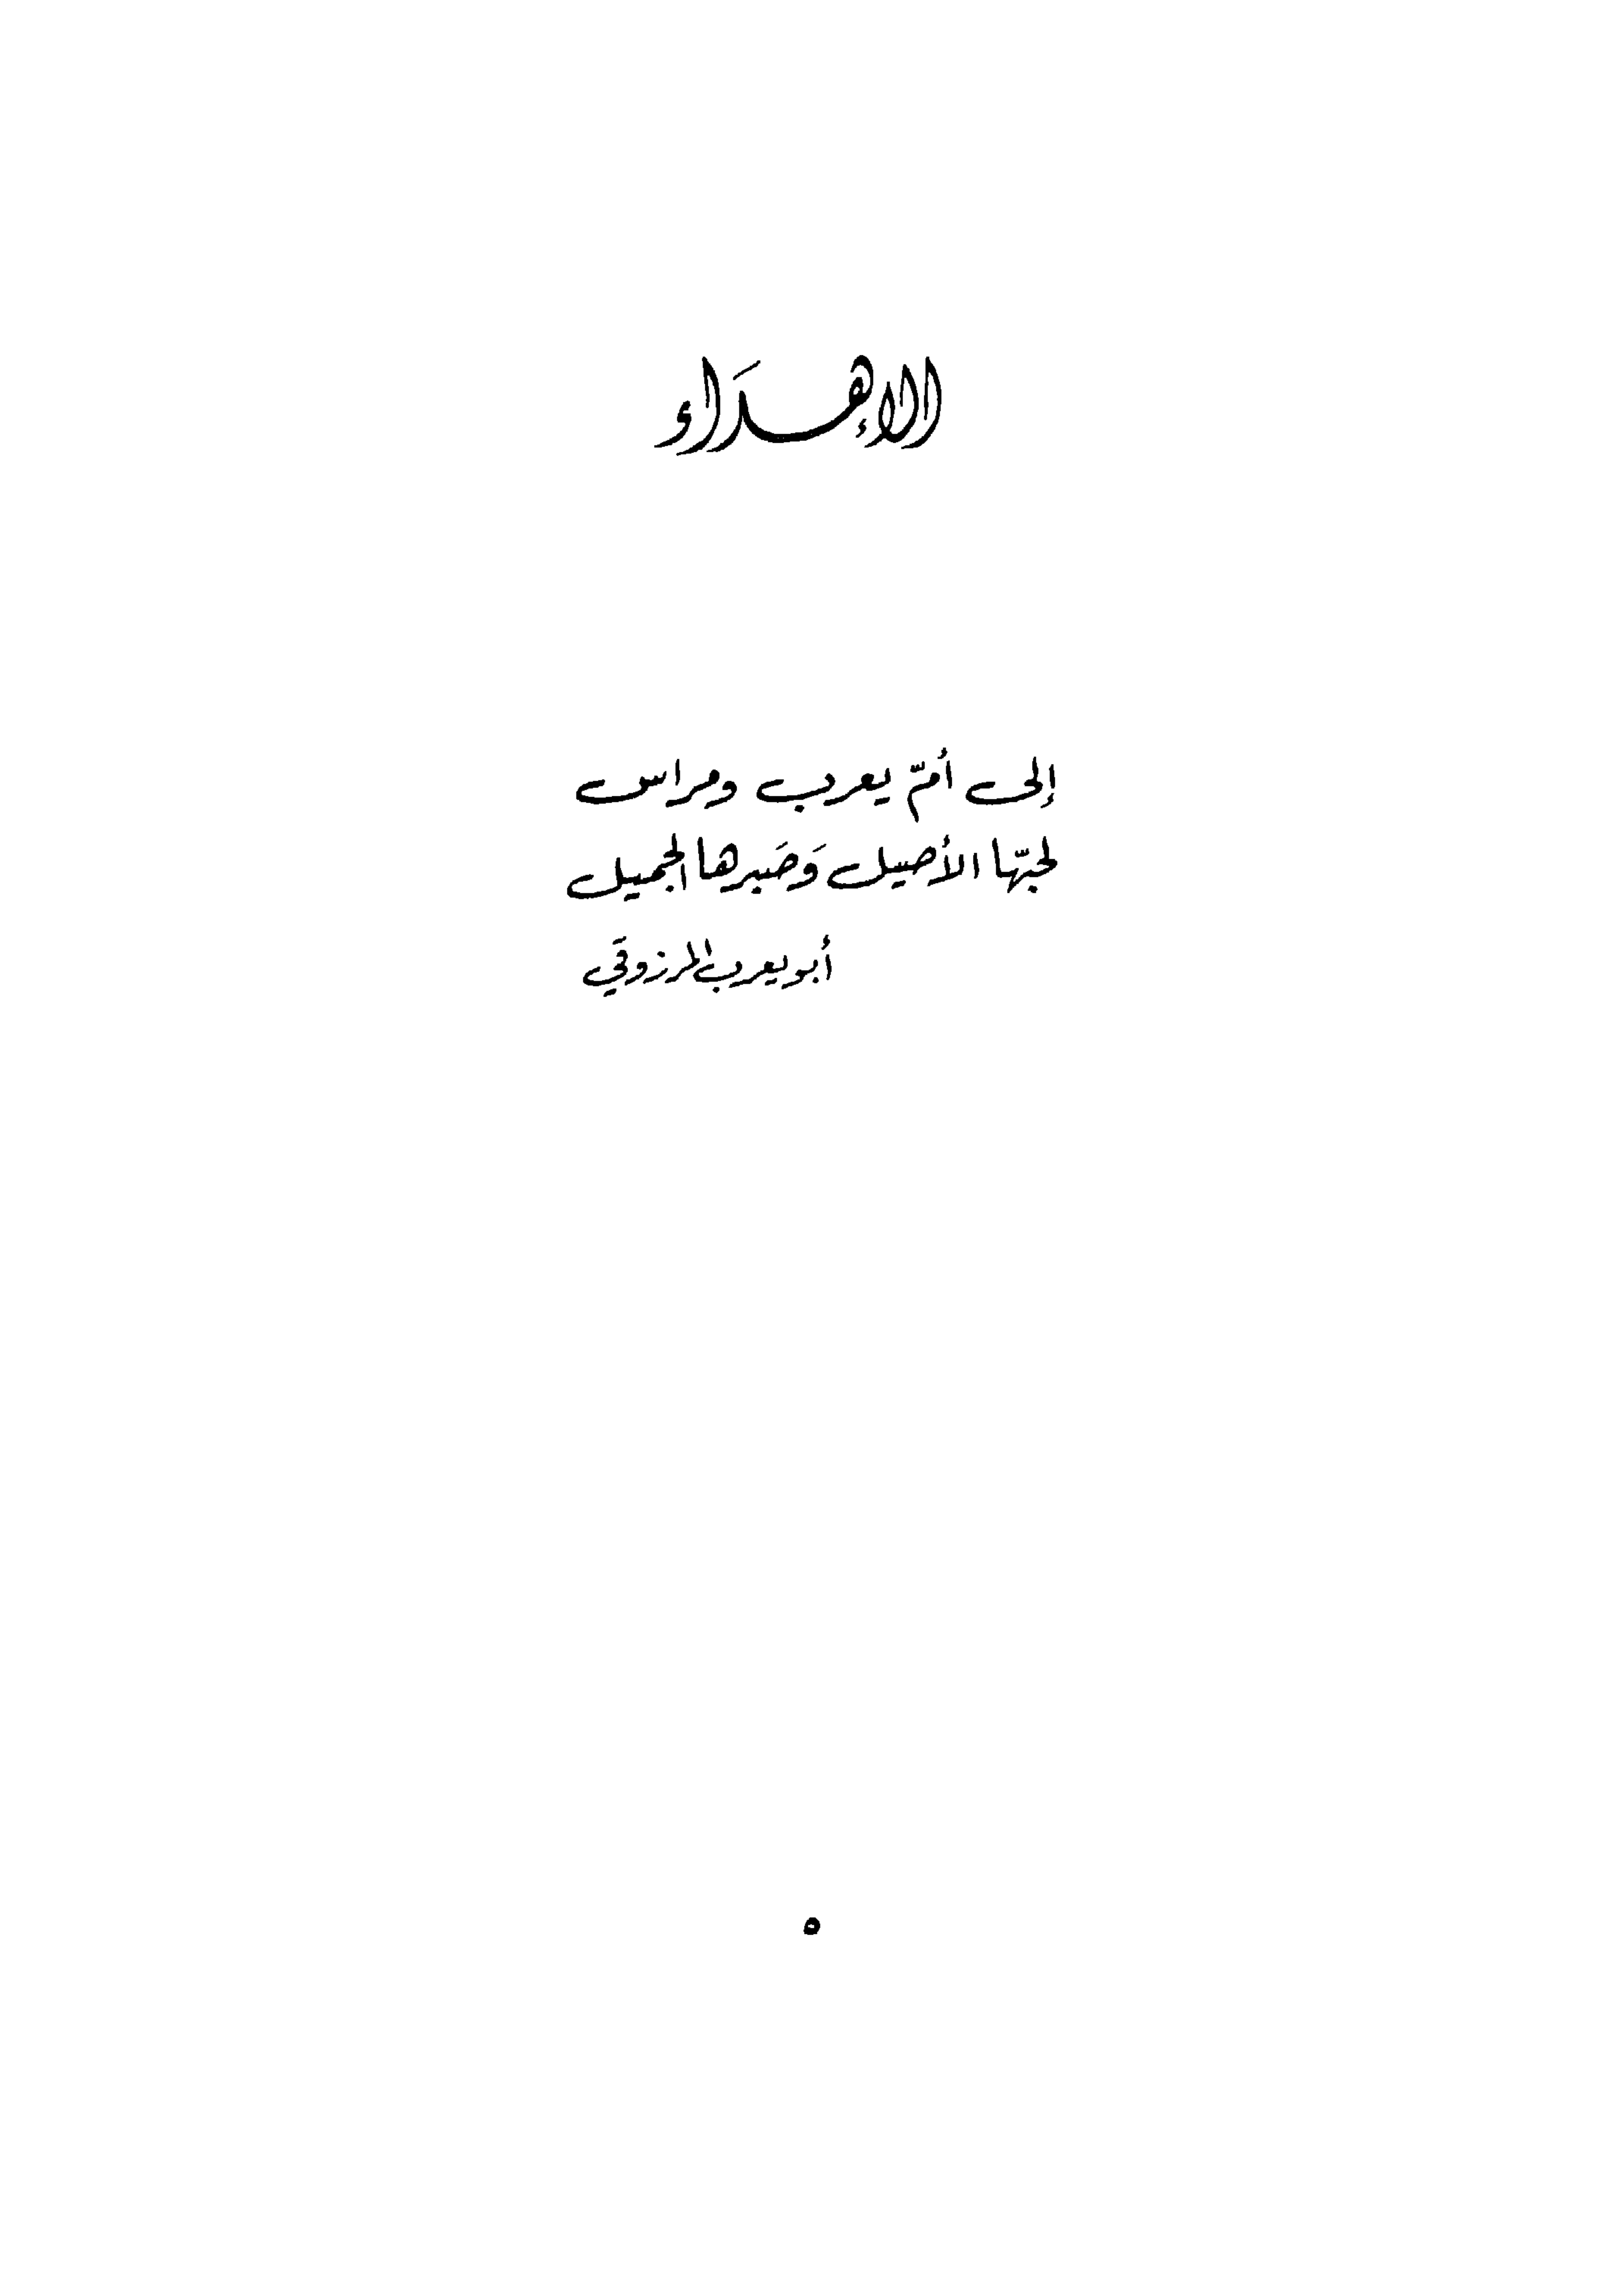 الإهدَاء
إلى أمّ يعرب ومراس
لحبّها الأصيل وَصَبرها الجميل
أبو يعرب المرزوقي
٥